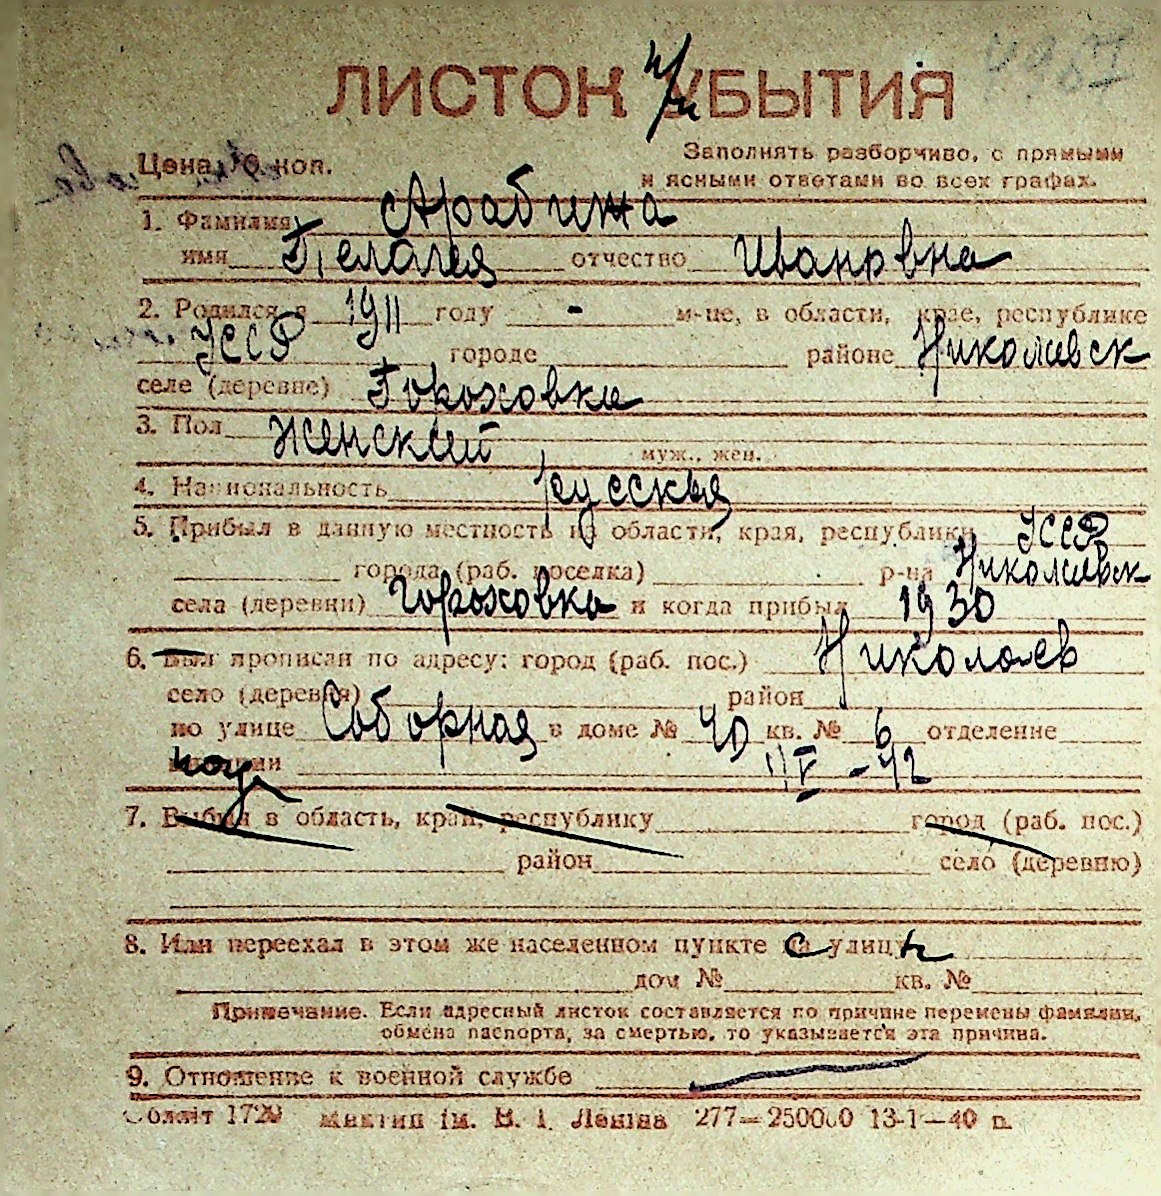 ЛИСТОК УБЫТИЯ
Цена 6 коп.
Заполнять разборчиво, с прямыми
и ясными ответами во всех графах.
1. Фамилия Арабижа
имя Пелагея отчество Ивановна
2. Родился в 1911 году - м-це, в области, крае, республике
УССР городе районе Николаевск
селе (деревне) Горохо́вка
3. Пол женский муж., жен.
4. Национальность русская
5. Прибыл в данную местность из области, края, республики УССР
города (раб. поселка) р-на Николаевск
села (деревни) Гороховка и когда прибыл 1930
6. Был прописан по адресу: город (раб. пос.) Николаев
село (деревня) район
по улице Соборная в доме № 40 кв. № 6 отделение
милиции 1/IV-42
7. Выбыл в область, край, республику город (раб. пос.)
район село (деревню)
8. Или переехал в этом же населенном пункте с улицы
дом № кв. №
Примечание. Если адресный листок составляется по причине перемены фамилии,
обмена паспорта, за смертью, то указывается эта причина.
9. Отношение к военной службе
Облліт 1729 Миктип ім. В. І. Леніна 277—250000 13-1—40 р.